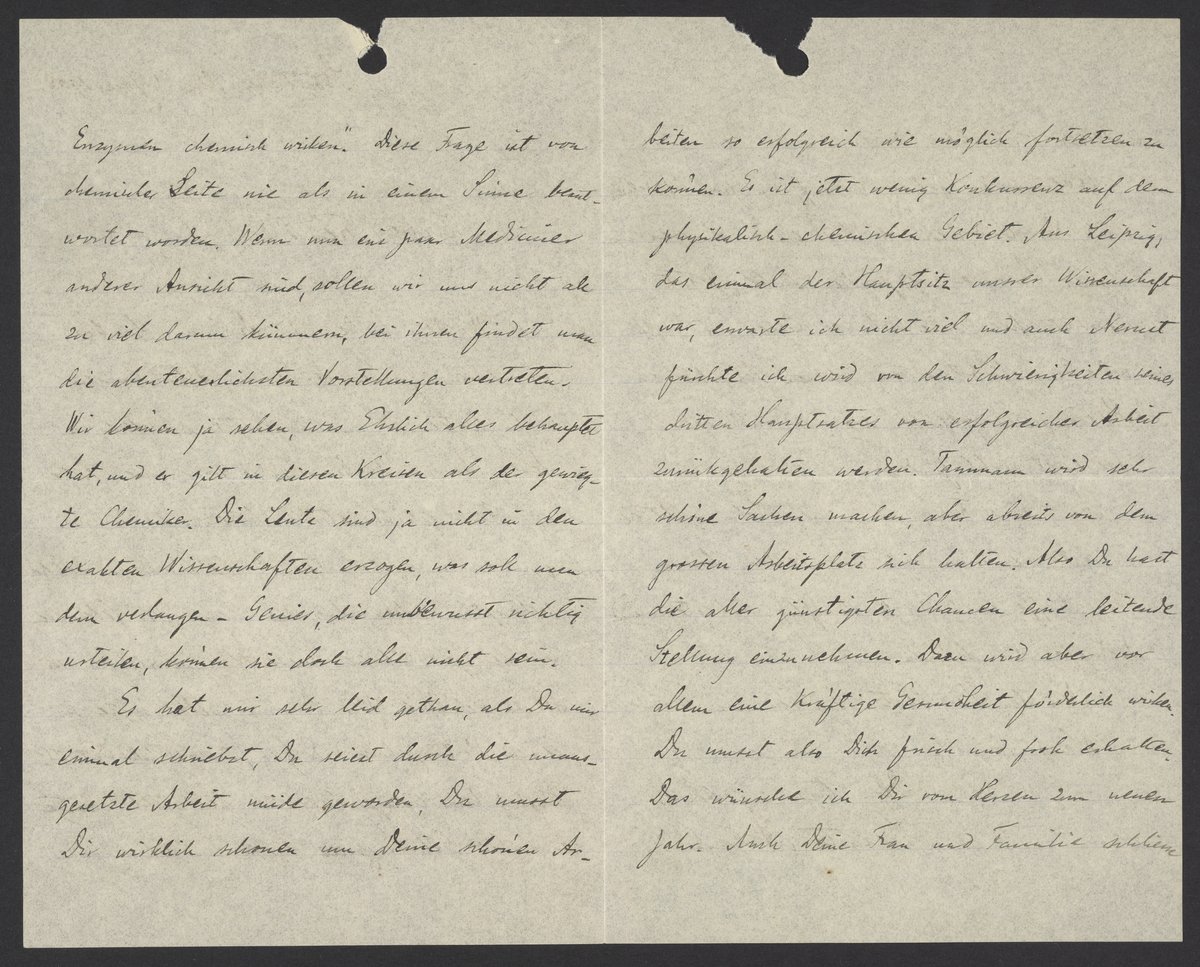 Enzymen chemisch wirken". Diese Frage ist von
chemischer Seite nie als in einem Sinne beant-
wortet worden. Wenn nun ein paar Mediciner
anderer Ansicht sind, sollen wir uns nicht all
zu viel darum kümmern, bei ihnen findet man
die abenteuerlichsten Vorstellungen vertreten.
Wir können ja sehen, was Ehrlich alles behauptet
hat, und er gilt in diesen Kreisen als der gewieg-
te Chemiker. Die Leute sind ja nicht in den
exakten Wissenschaften erzogen, was soll man
denn verlangen – Genies, die unbewusst richtig
urteilen, können sie doch alle nicht sein.
Es hat mir sehr leid gethan, als Du mir
einmal schriebst, Du seiest durch die unaus-
gesetzte Arbeit müde geworden. Du musst
Dir wirklich schonen um Deine schönen Ar-
beiten so erfolgreich wie möglich fortsetzen zu
können. Es ist jetzt wenig Konkurrenz auf dem
physikalisch-chemischen Gebiet. Aus Leipzig,
das einmal der Hauptsitz unsrer Wissenschaft
war, erwarte ich nicht viel und auch Nernst
fürchte ich wird von den Schwierigkeiten seines
dritten Hauptsatzes von erfolgreicher Arbeit
zurückgehalten werden. Tammann wird sehr
schöne Sachen machen, aber abseits von dem
grossen Arbeitsplatz sich halten. Also Du hast
die aller günstigsten Chancen eine leitende
Stellung einzunehmen. Dazu wird aber vor
allem eine kräftige Gesundheit förderlich wirken.
Du musst also Dich frisch und froh erhalten.
Das wünsche ich Dir von Herzen zum neuen
Jahr. Auch Deine Frau und Familie schliesse